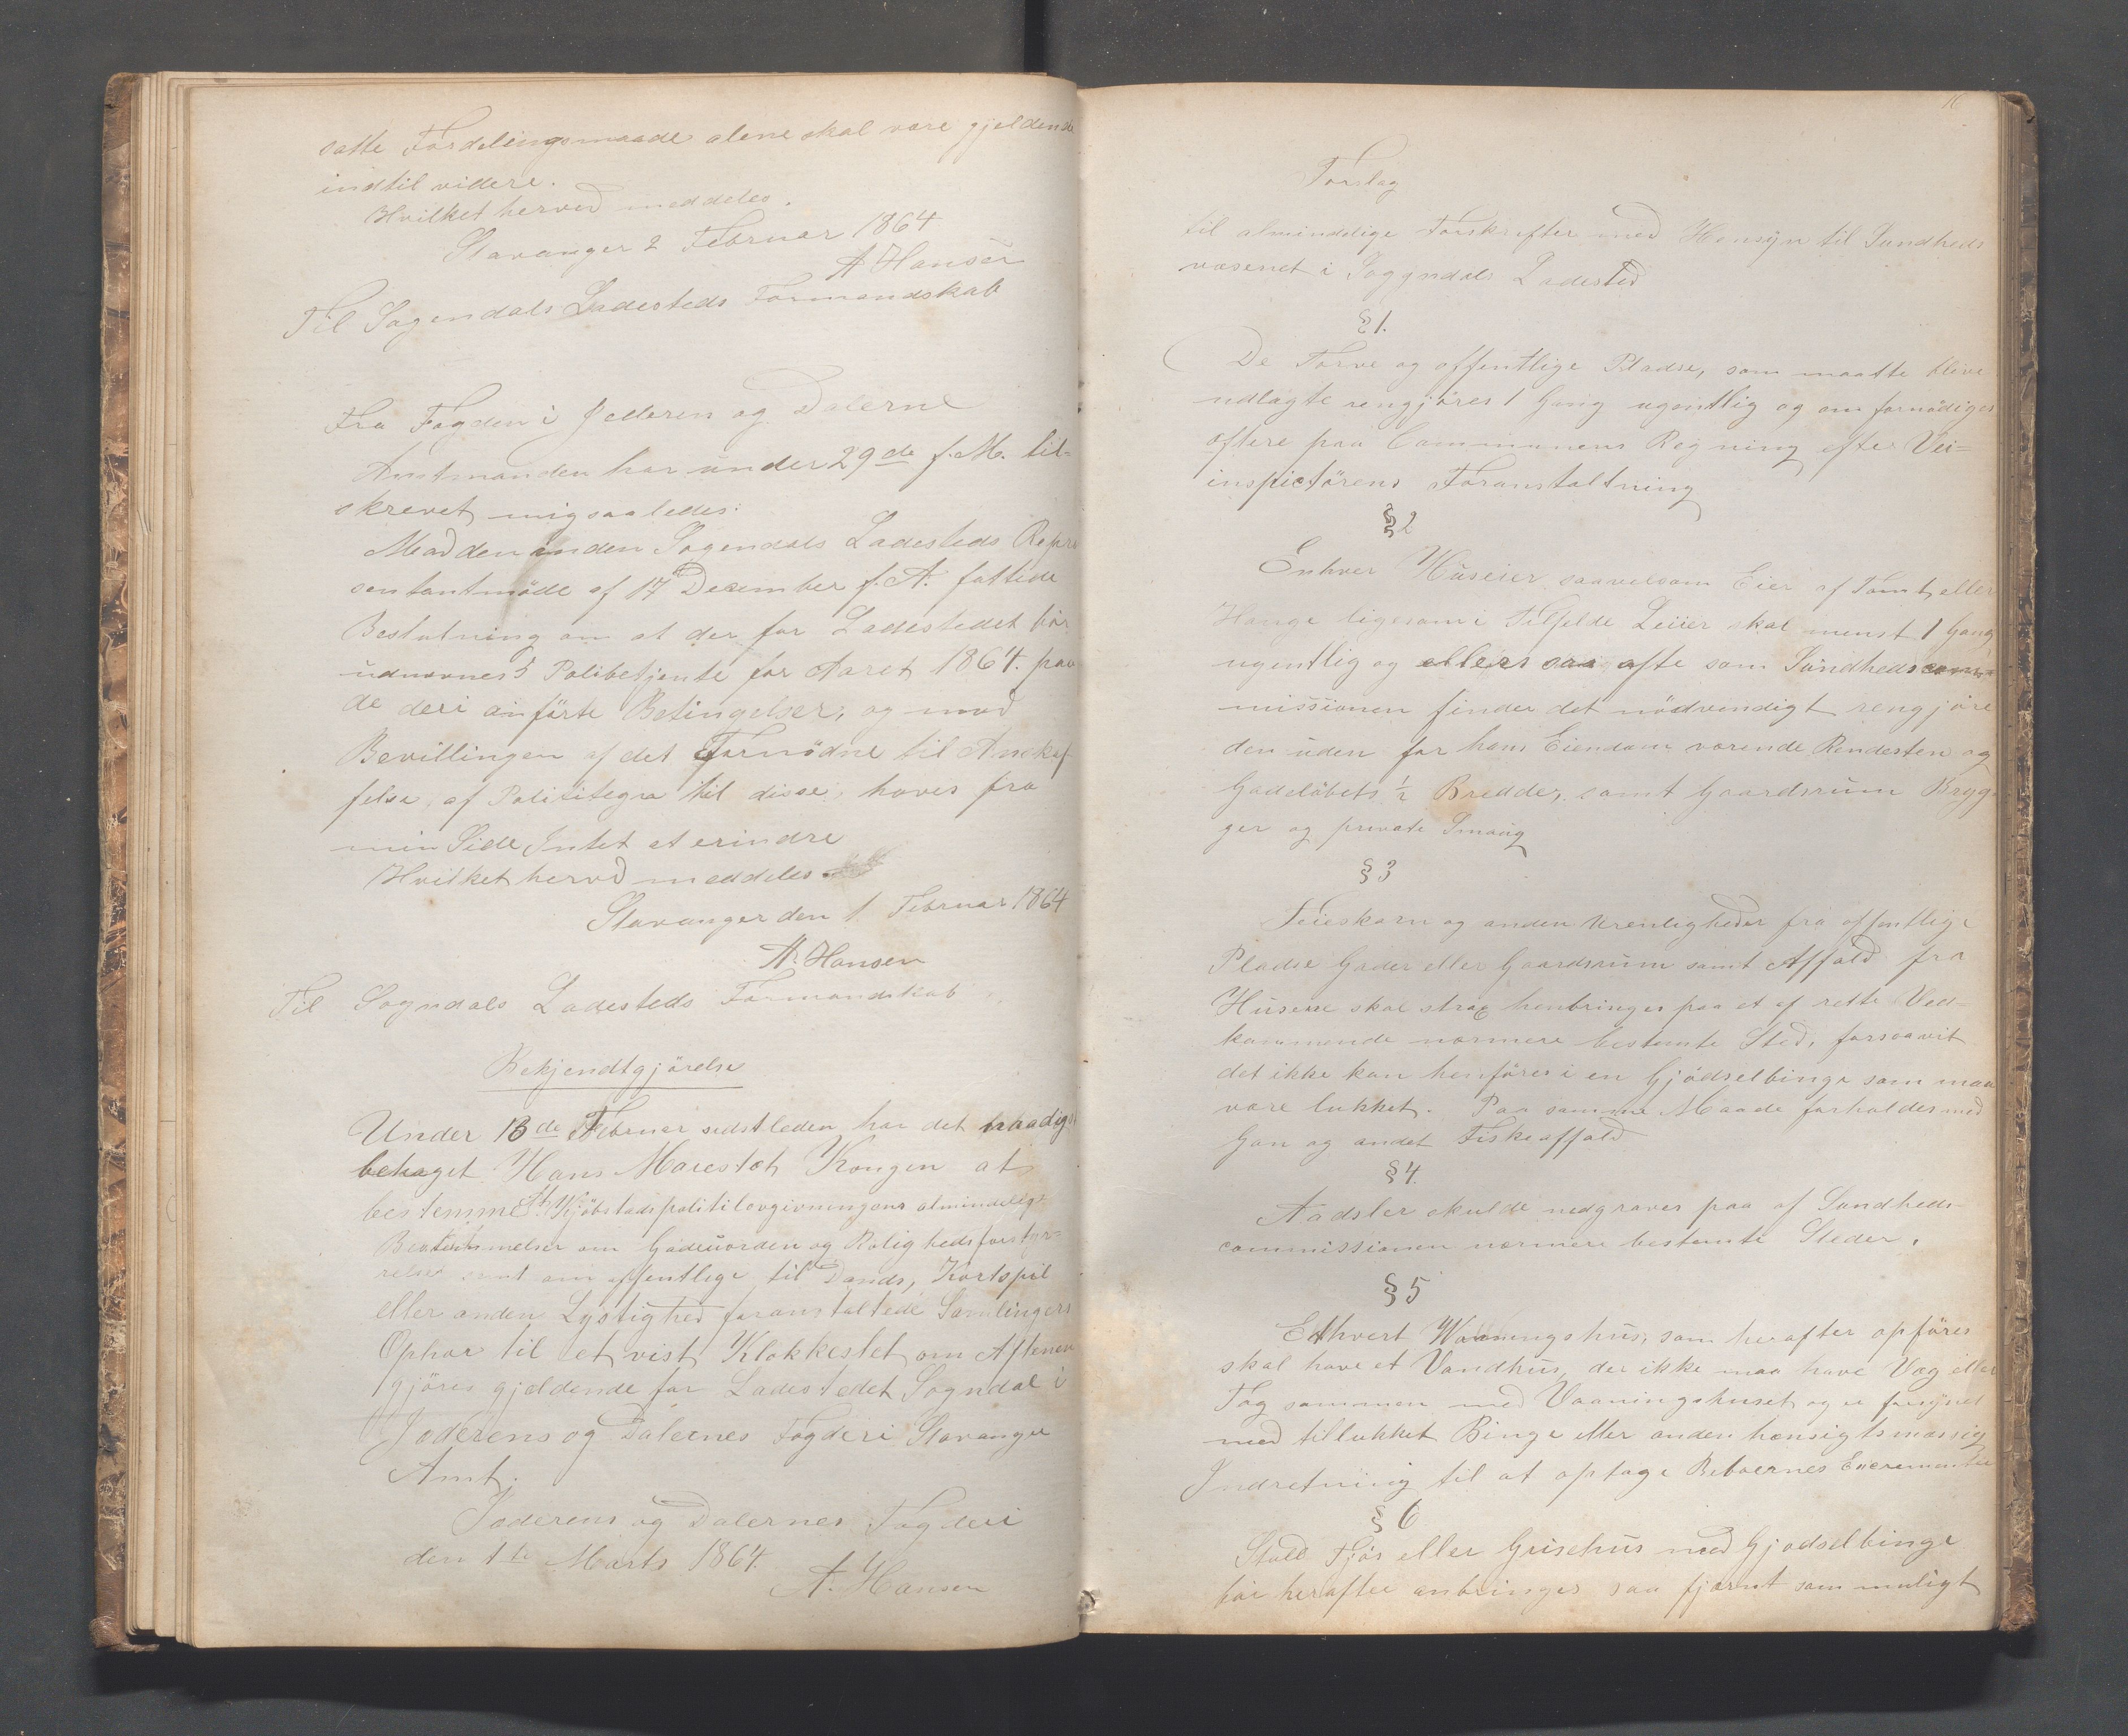 satte Fordelingsmaade alene skal være gjeldende
indtil videre.
Hvilket herved meddeles.
Stavanger 2 Februar 1864
A Hansen
Til Sogendals Ladesteds Formandskab
Fra Fogden i Jederen og Dalerne
Amtmanden har under 29de f. M. til-
skrevet mig saaledes:
Mod den inden Sogendals Ladesteds Repræ
sentantmöde af 17 December f. A. fattede
Beslutning om at der for Ladestedet bör
udnævnes 5 Politbetjente for Aaret 1864. paa
de deri anförte Betingelser, og mod
Bevillingen af det Fornödne til Anskaf-
felse af Polititegn til disse, haves fra
min Side Intet at erindre
Hvilket herved meddeles
Stavanger den 1 Februar 1864
A. Hansen
Til Sogndals Ladesteds Formandskab
Bekjendtgjörelse
Under 13de Februar sidstleden har det naadigst
behaget Hans Majestæt Kongen at
bestemme At Kjöbstadspolitilovgivningens almindelige
Bestemmelser om Gadeuorden og Rolighedsforstyr-
relse samt om offentlige til Dands, Kortspil
eller anden Lystighed foranstaltede Samlingers
Ophør til et vist Klokkeslet om Aftenen
gjöres gjeldende for Ladestedet Sogndal i
Jæderens og Dalernes Fogderi Stavanger
Amt.
Jæderens og Dalernes Fogderi
den 1te Marts 1864.
A. Hansen
16
Forslag
til almindelige Forskrifter med Hensyn til Sundheds
væsenet i Soggndals Ladested
§ 1.
De Torve og offentlige Pladse, som maatte blive
udlagte rengjöres 1 Gang ugentlig og om fornödiges
oftere paa Communens Regning efter Vei-
inspictörens Foranstaltning
§ 2
Enhver Huseier saavelsom Eier af Tomt, eller
Hauge ligesom i Tilfelde Leiier skal minst 1 Gang
ugentlig og ellers saa ofte som Sundhedscom-
missionen finder det nödvendigt rengjöre
den uden for hans Eiendom værende Rendesten og
Gadelöbets ½ Bredde, samt Gaardsrum Bryg-
ger og private Smaug
§ 3
Feieskarn og anden Urenligheder fra offentlige
Pladse Gader eller Gaardsrum samt Affald fra
Husene skal strax henbringes paa et af rette Ved-
kommende nærmere bestemte Sted, forsaavit
det ikke kan henföres i en Gjödselbinge som maa
være lukket. Paa samme Maade forholdes med
Gan og andet Fiskeaffald
§ 4.
Aadsler skulde nedgraves paa af Sundheds-
commissionen nærmere bestemte Steder.
§ 5
Ethvert Waaningshus, som herefter opföres
skal have et Vandhus, der ikke maa have Væg eller
Tag sammen med Vaaningshuset og er forsynet
med tillukket Binge eller anden hensigtsmæssig
Indretning til at optage Beboernes Excrementer
§ 6
Stald Fjös eller Grisehus med Gjødselbinge
bör herefter anbringes saa fjærnt som muligt